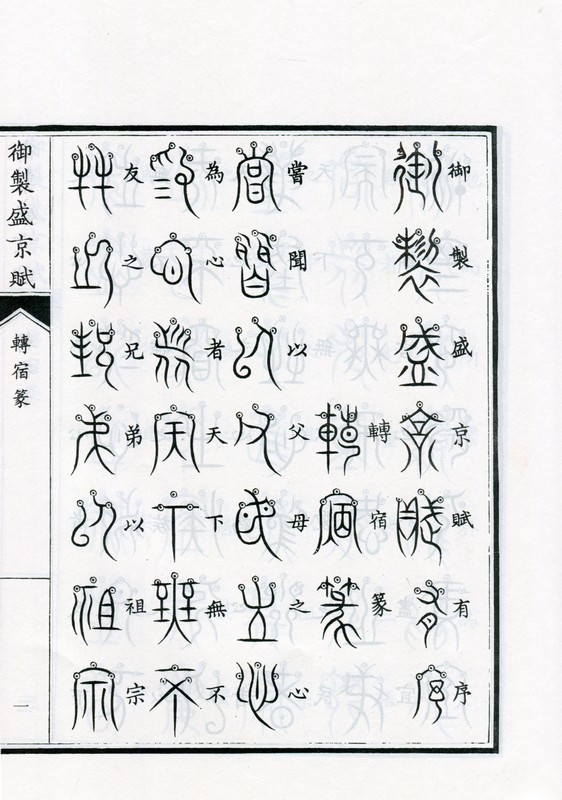 御製盛京賦有序
轉宿篆
嘗聞以父母之心
為心者天下無不
友之兄弟以祖宗
御製盛京賦
轉宿篆
一